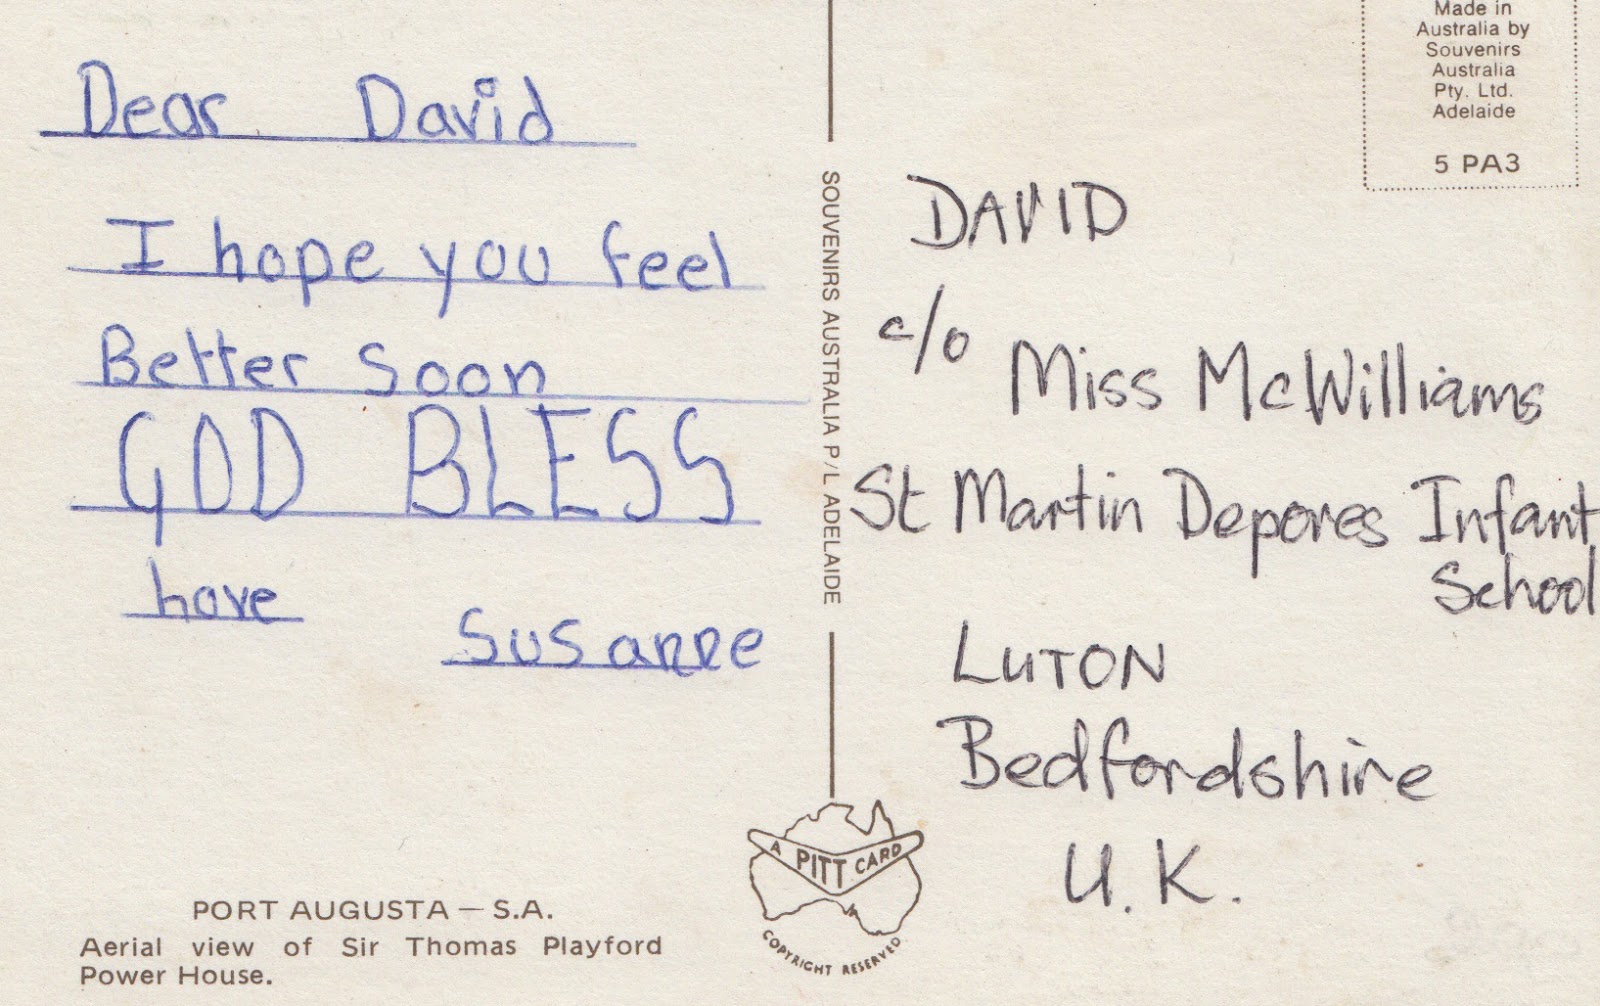 Dear David
I hope you feel
Better Soon
GOD BLESS
love
Susanne
PORT AUGUSTA — S.A.
Aerial view of Sir Thomas Playford
Power House.
SOUVENIRS AUSTRALIA P/L ADELAIDE
A PITT CARD
COPYRIGHT RESERVED
Made in
Australia by
Souvenirs
Australia
Pty. Ltd.
Adelaide
5 PA3
DAVID
c/o Miss McWilliams
St Martin Depores Infant
School
LUTON
Bedfordshire
U.K.